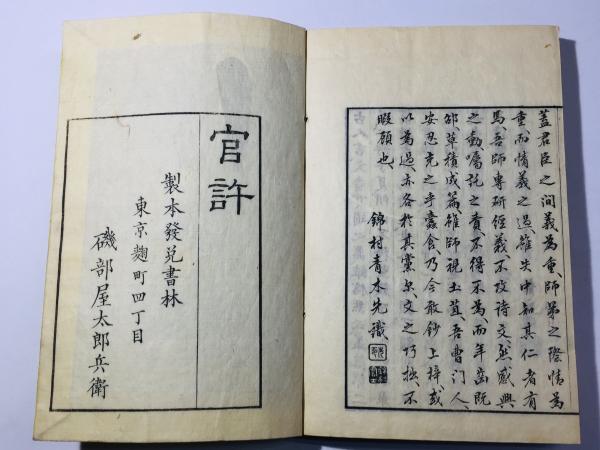 蓋君臣之間義為重師弟之際情為
重而情義之過雖失中知其仁者有
焉吾師專研經義不攻詩文然感興
之動囑託之責不得不為而年齒既
邵草積成篇雖師視土苴吾曹門人
安忍充之乎蠹食乃今敢鈔上梓或
以為過亦各於其黨尔文之巧拙不
暇顧也
錦村青木先識
官許
製本發兌書林
東京麹町四丁目
磯部屋太郎兵衛